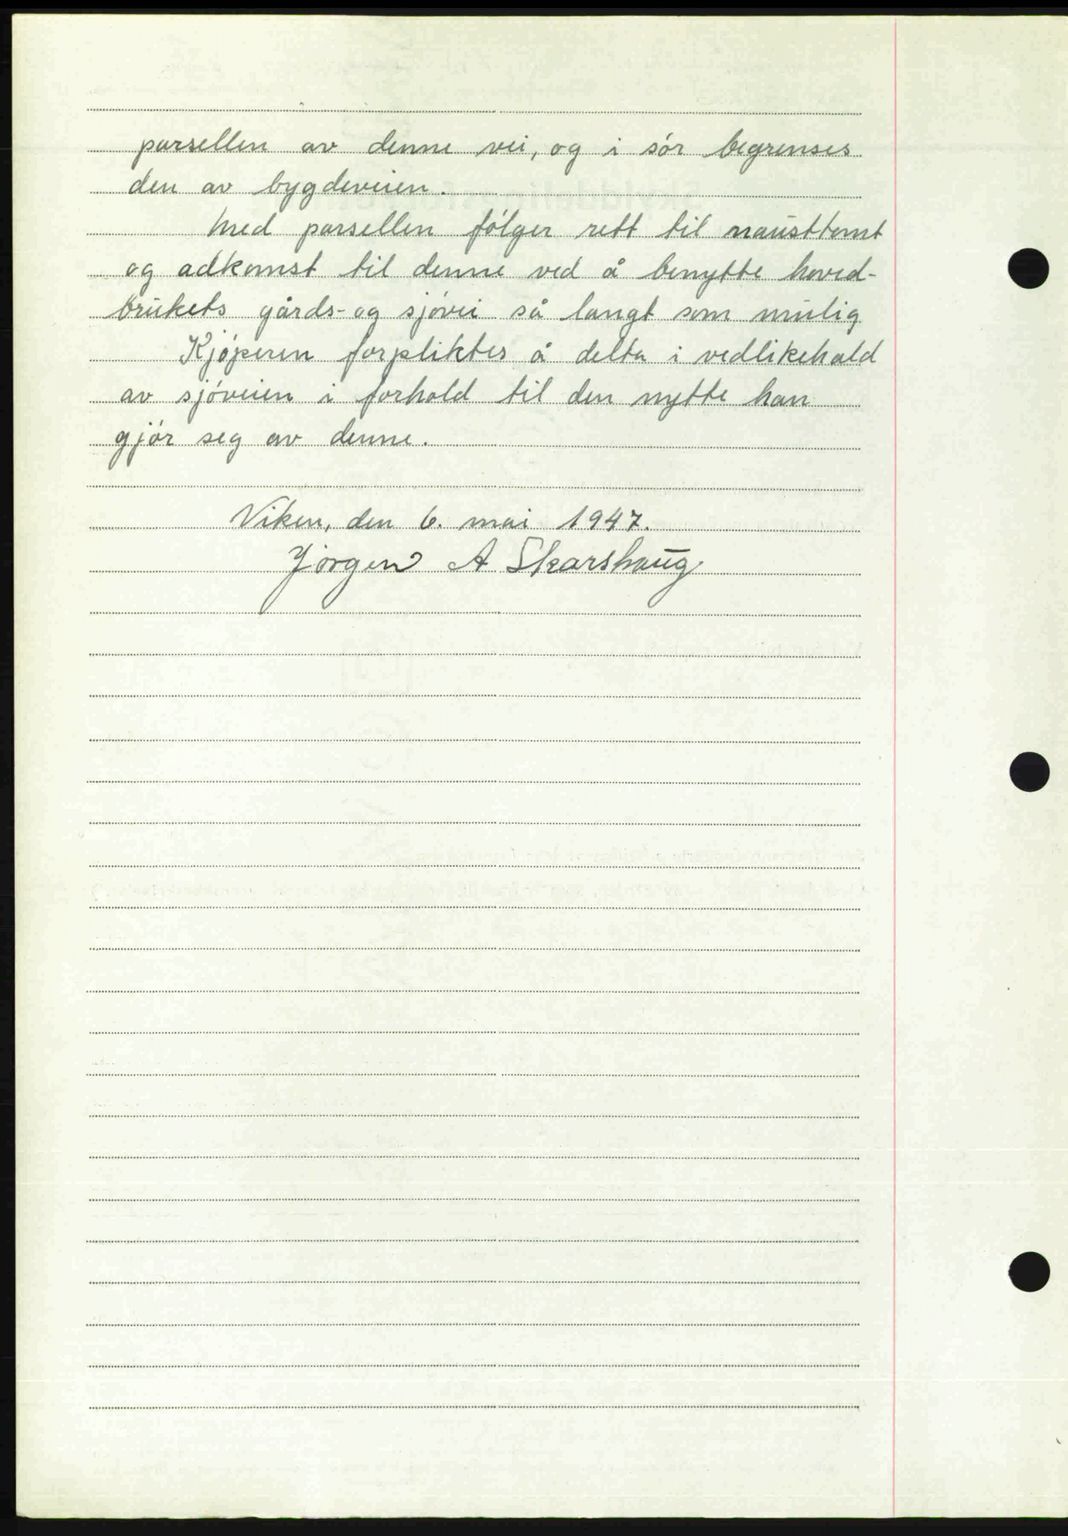 parsellen av denne vei, og i sór begrenses
den av bygdeveien.
Med parsellen fólger rett til nausttomt
og adkomst til denne ved å benytte hoved-
brukets gårds- og sjóvei så langt som mulig
Kjóperen forpliktes å delta i vedlikehold
av sjóveien i forhold til den nytte han
gjór seg av denne.
Viken, den 6. mai 1947.
Jörgen A Skarshaug